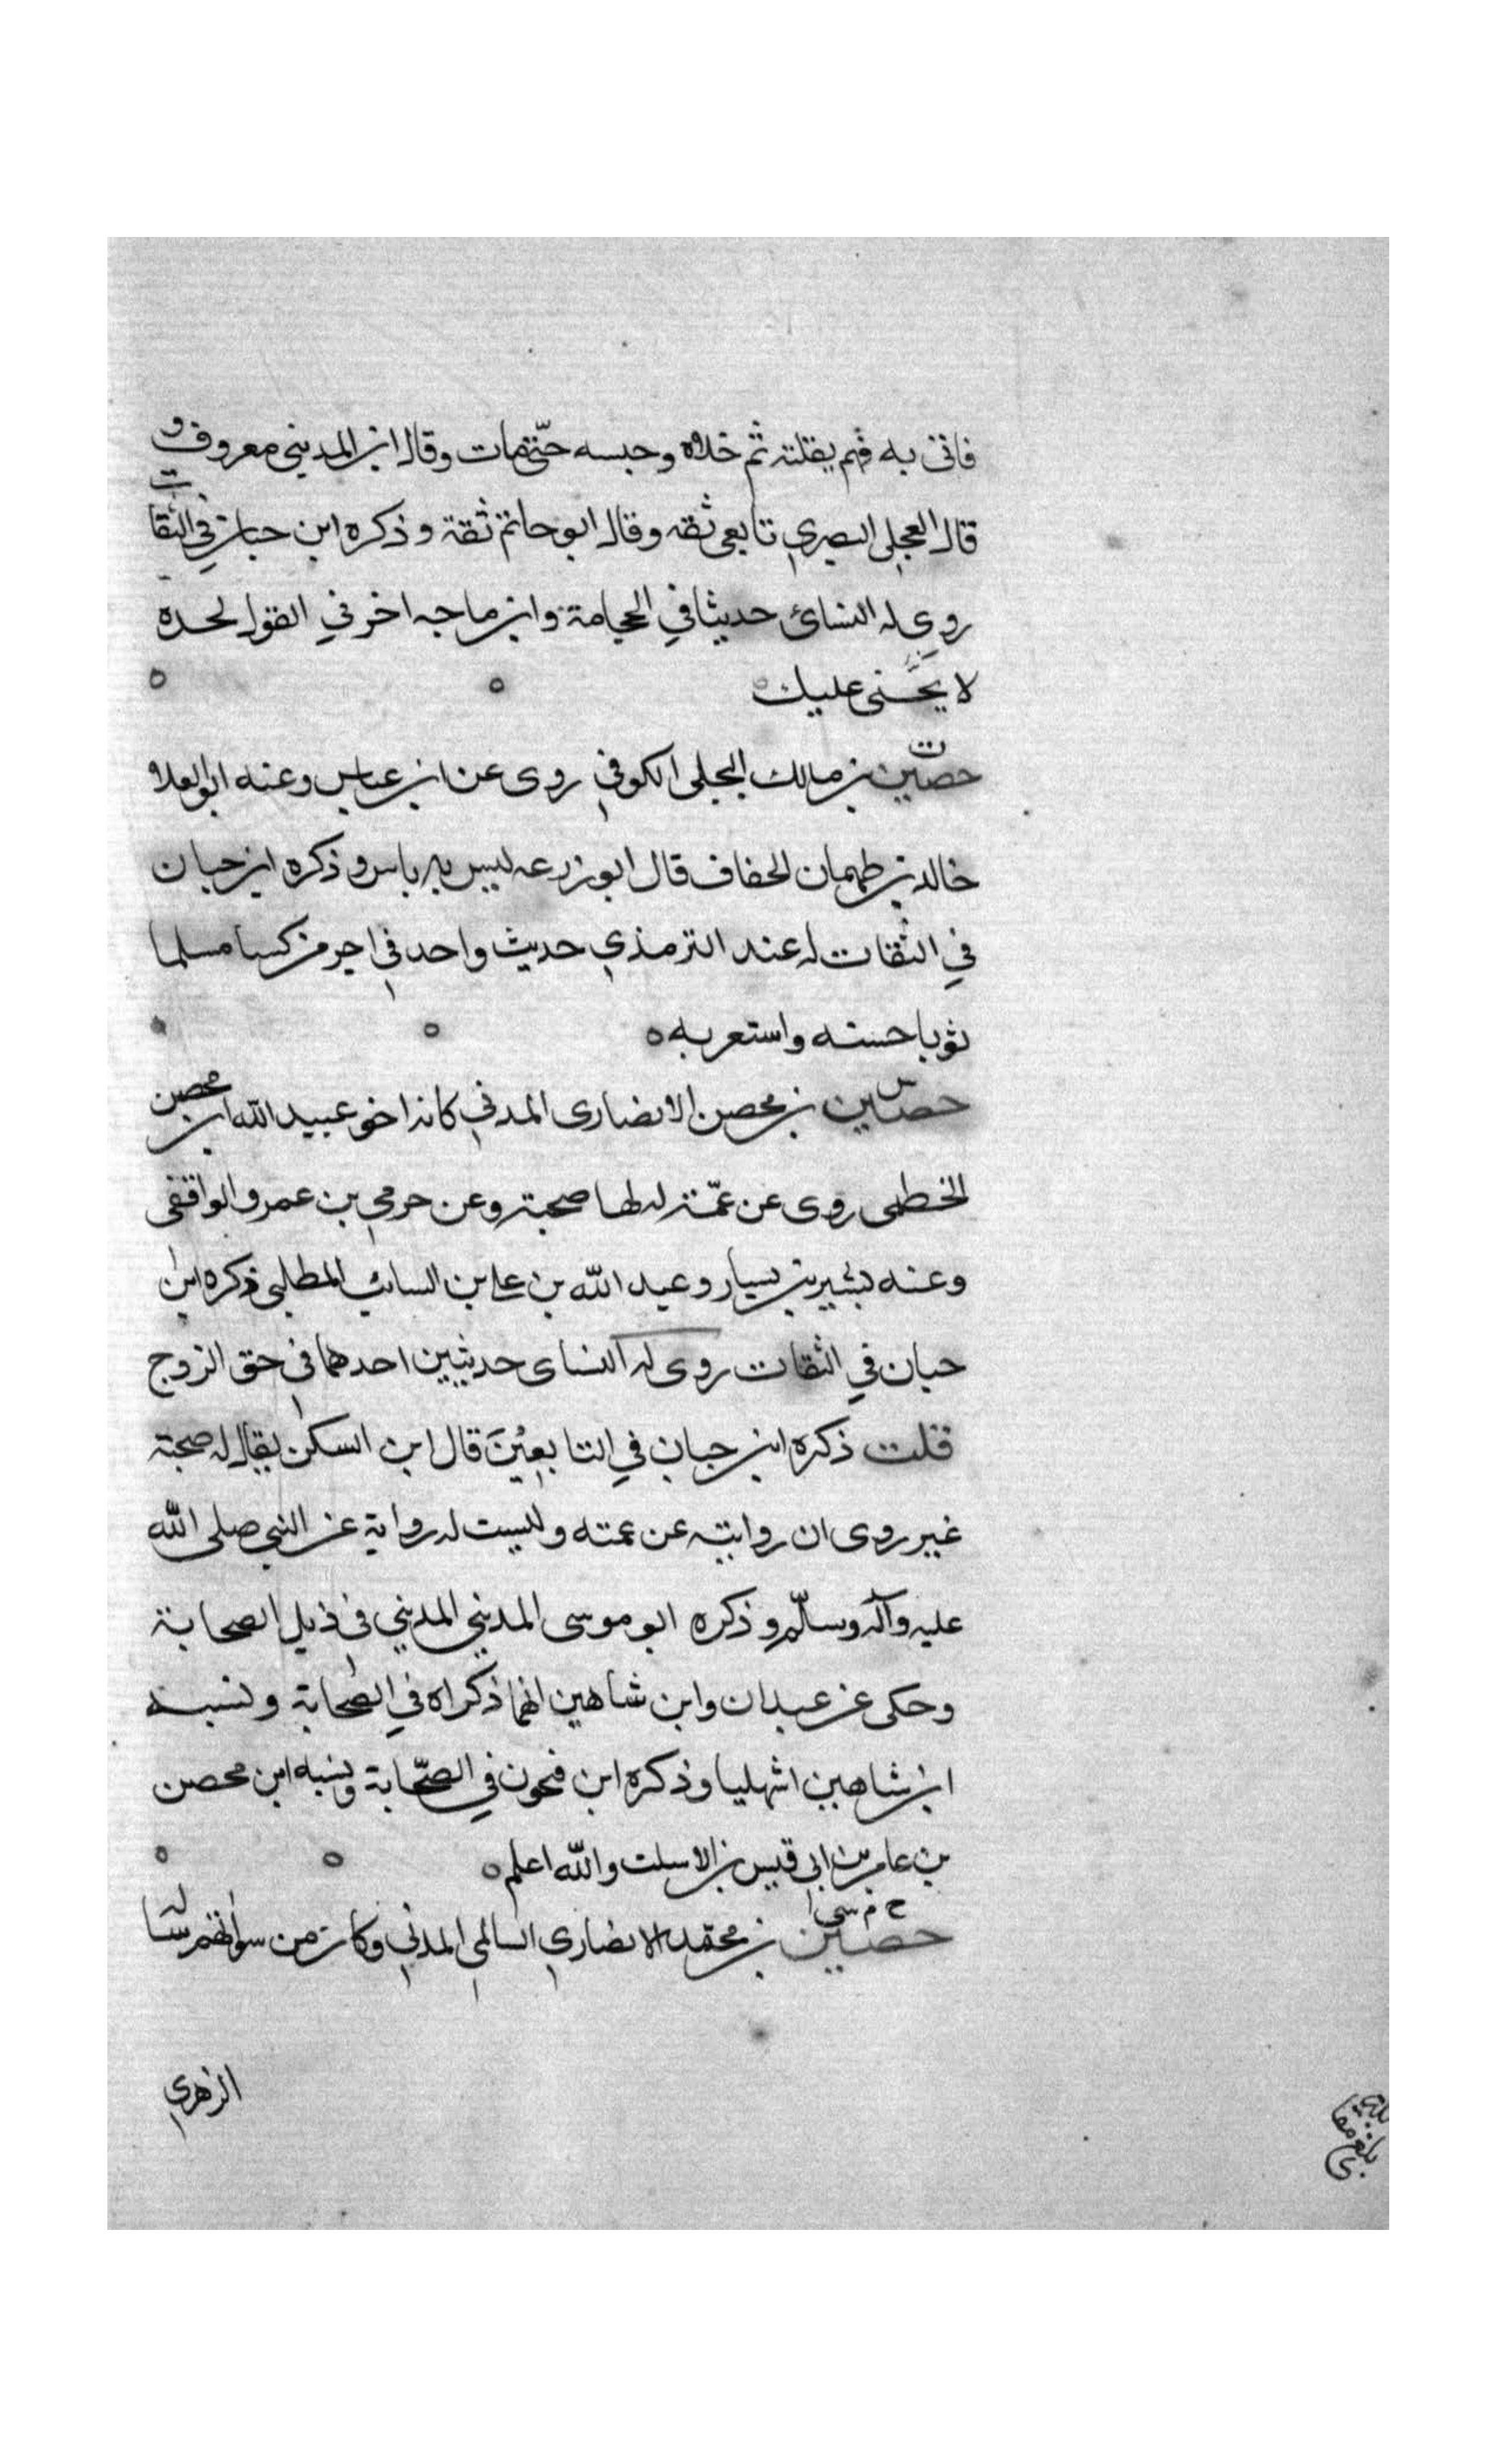 فاتى به فهم بقتله ثم خلاه وحبسه حتى مات وقال ابن المديني معروف و
قال العجلي البصري تابعي ثقه وقال ابو حاتم ثقة وذكره ابن حبان في الثقات
روى له النسائ حديثا في الحجامة وابن ماجه اخر في القول لحده
لا يجنى عليك
ت
حصين بن مالك البجلي الكوفي روى عن ابن عباس وعنه ابوالعلاء
خالد بن طهمان الخفاف قال ابو زرعه ليس به باس وذكره ابن حبان
في الثقات له عند الترمذي حديث واحد في اجر من كسا مسلما
ثوبا حسنه واستغربه ه
س
حصين بن محصن الانصارى المدني كانه اخو عبيد الله ابن محصن
الخطمى روى عن عمّته لها صحبة وعن حرمي بن عمرو الواقفى
وعنه بشير بن يسار وعبد الله بن على بن السائب المطلبي ذكره ابن
حبان في الثقات روى له النساى حديثين احدهما في حق الزوج
قلت ذكره ابن حبان في التابعين قال ابن السكن يقال له صحبة
غير روى ان روايته عن عمته وليست له رواية عن النبي صلى الله
عليه وآله وسلّم وذكره ابو موسى المديني المديني في ذيل الصحابة
وحكى عن عبدان وابن شاهين انهما ذكراه في الصّحابة ونسبه
ابن شاهين اشهليا وذكره ابن فتحون في الصّحابة ونسبه ابن محصن
بن عامر بن ابى قيس بن الاسلت والله اعلم ه
خ م سى
حصين بن محمد الانصاري السالمي المدني وكان من سراتهم ساله
الزهري
بلغ